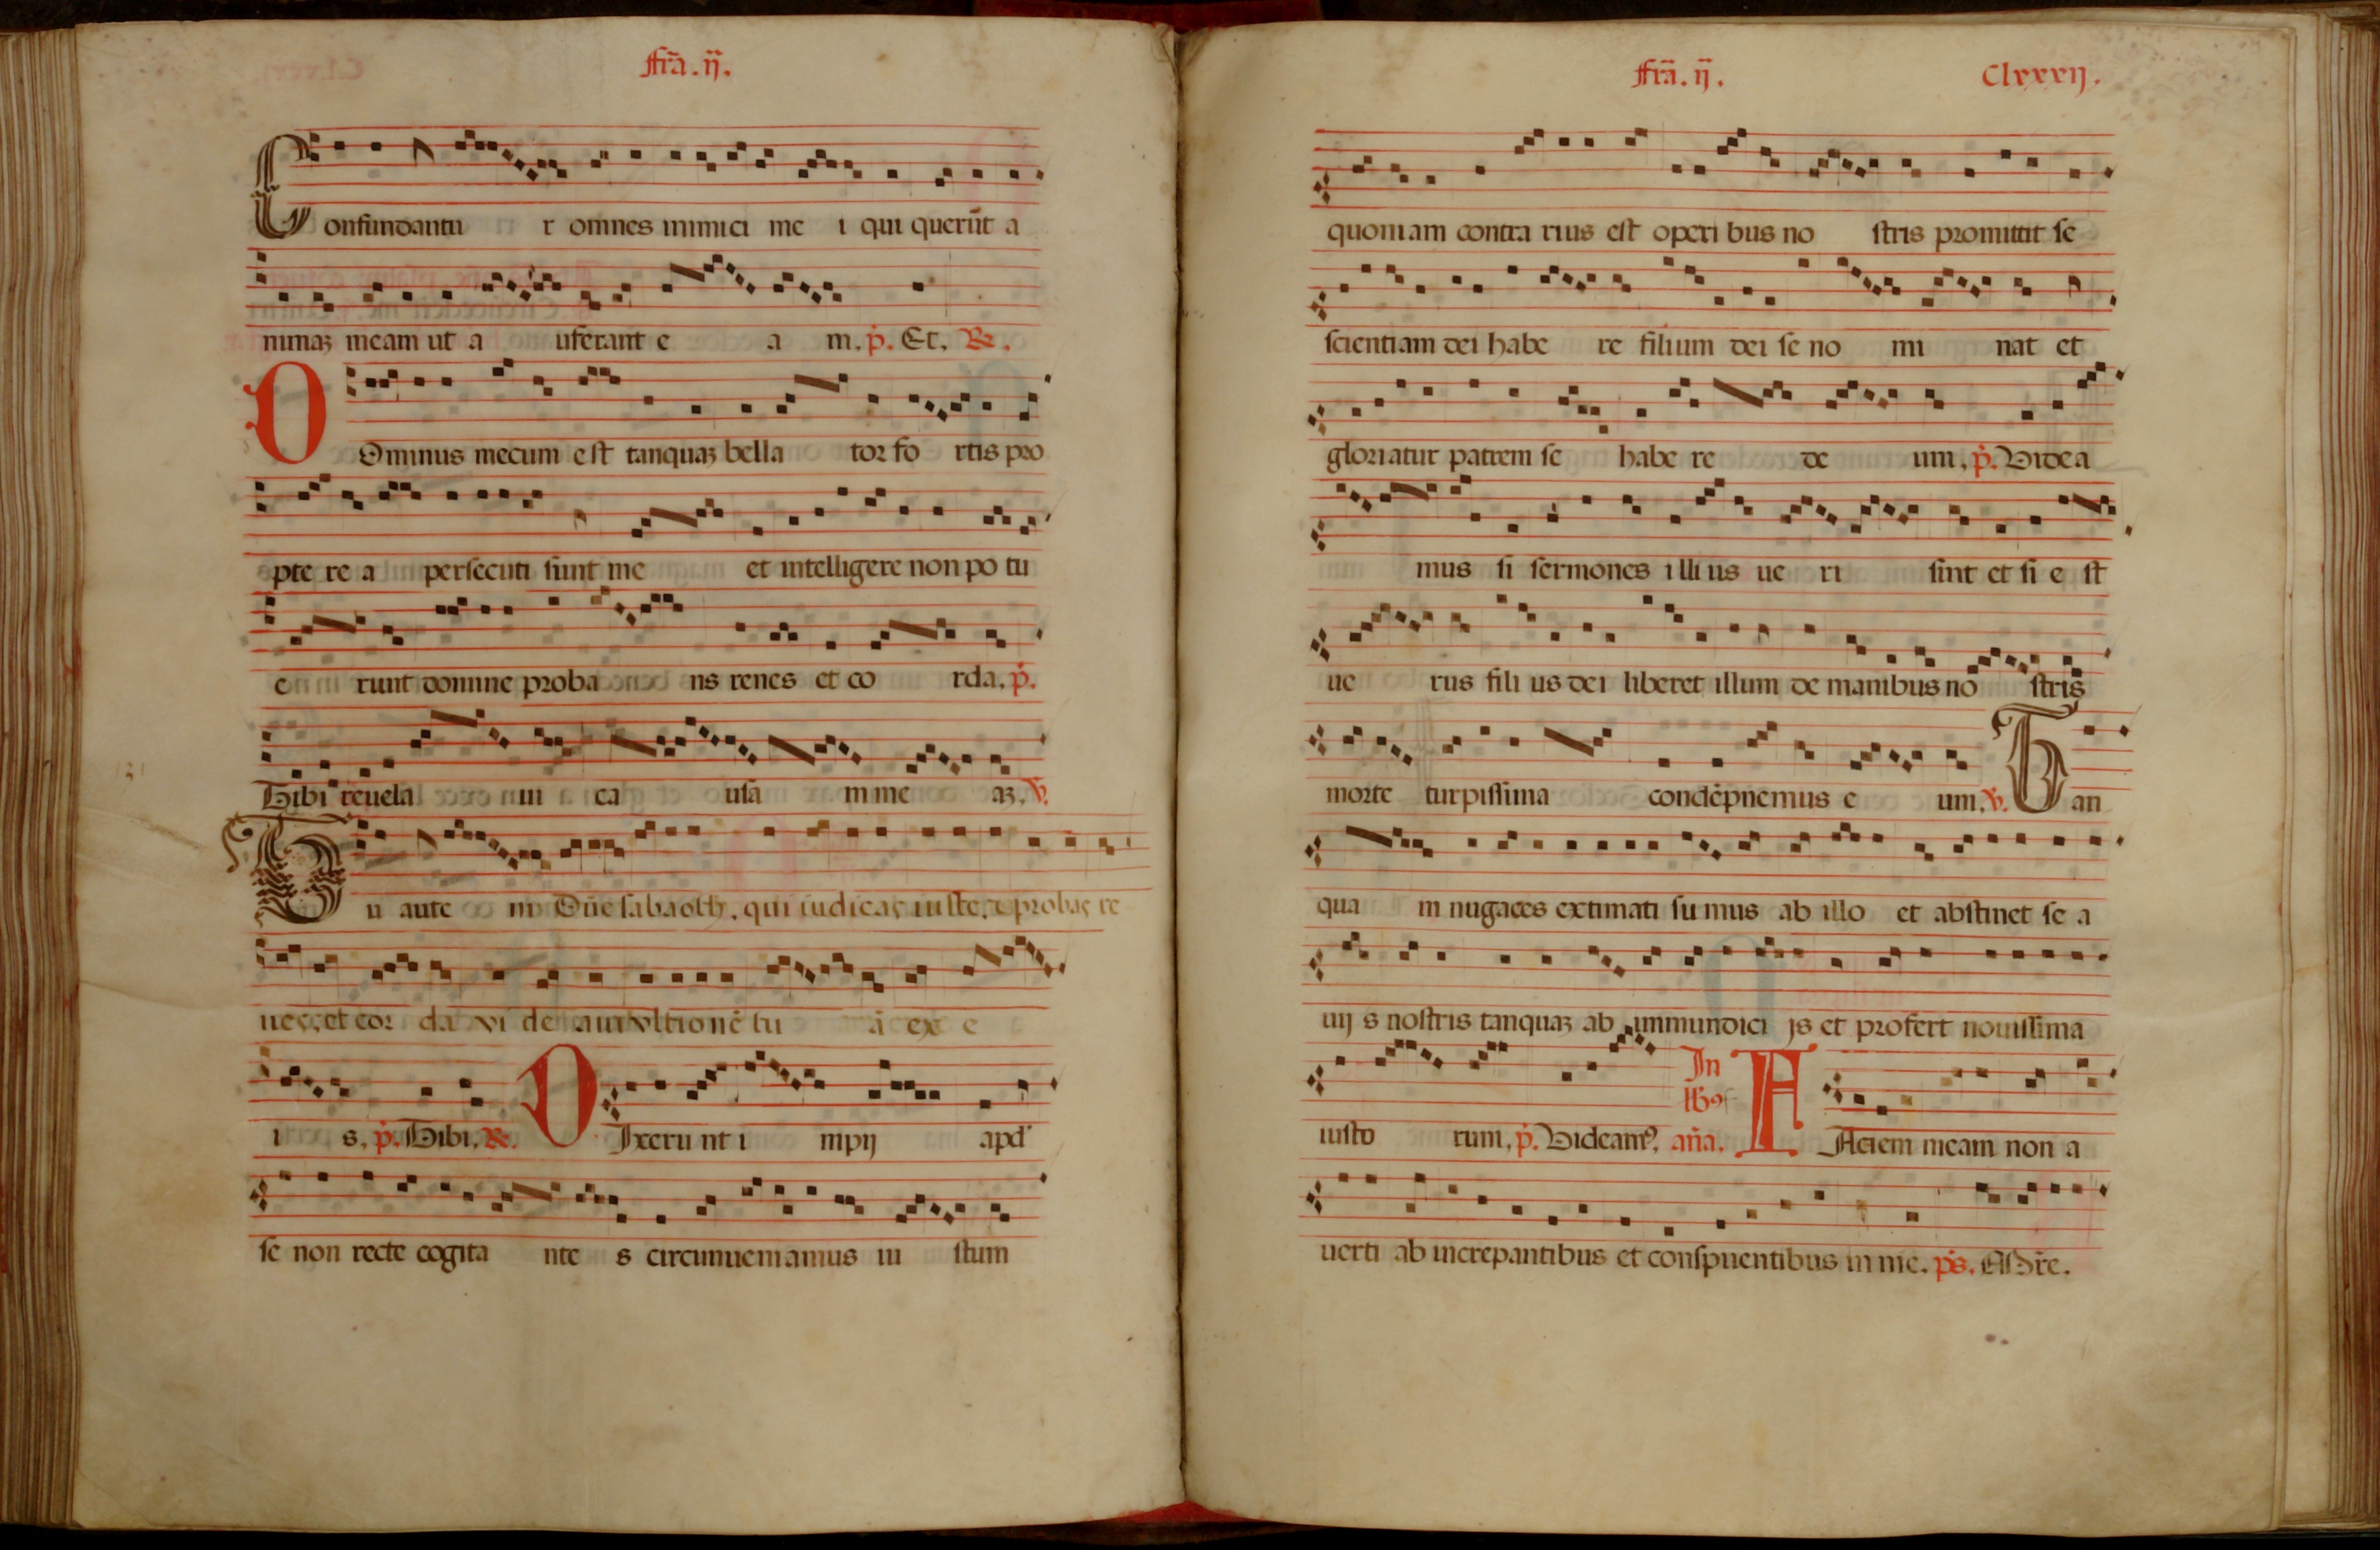 Fra͂. ij.
Confundantu r omnes inimici me i qui querūt a
nimaꝫ meam ut a uferant e a m. p̄. Et. ℞.
DOminus mecum est tanquaꝫ bella tor fo rtis pro
pte re a persecuti sunt me et intelligere non po tu
e runt domine proba ns renes et co rda. p̄.
Tibi reuela ui ca usa m me aꝫ. ℣.
Tu aute m Dn̄e sabaoth, qui iudicas iuste, et probas re
nes, et cor da vi de am vltionē tu ā ex e
i s. p̄. Tibi. ℞. DIxeru nt i mpij apd'
se non recte cogita nte s circumueniamus iu stum
Fra͂. ij. Clxxxij.
quoniam contra rius est operi bus no stris promittit se
scientiam dei habe re filium dei se no mi nat et
gloriatur patrem se habe re de um. p̄. Videa
mus si sermones illi us ue ri sint et si e st
ue rus fili us dei liberet illum de manibus no stris
morte turpissima condēpnemus e um. ℣. Tan
qua m nugaces extimati su mus ab illo et abstinet se a
uij s nostris tanquaꝫ ab immundici js et profert nouissima
iusto rum. p̄. Videamꝰ. In lbꝰ an̄a. FAciem meam non a
uerti ab increpantibus et conspuentibus in me. ps.